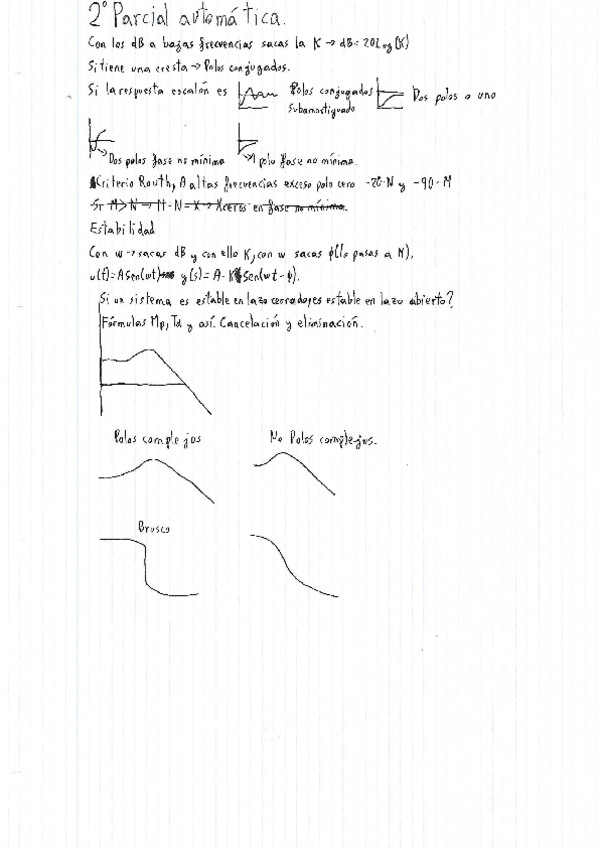 2° Parcial automática.
Con los dB a bajas frecuencias sacas la K → dB = 20Log(K)
Si tiene una cresta → Polos conjugados.
Si la respuesta escalón es Polos conjugados Dos polos o uno
Subamortiguado
Dos polos fase no mínima 1 polo fase no mínima.
Criterio Routh, A altas frecuencias exceso polo cero -20·N y -90·M
Si M>N → M-N = X → Xceros en fase no mínima.
Estabilidad
Con w → sacas dB y con ello K, con w sacas φ(lo pasas a N).
u(t) = A sen(wt) y(s) = A·K sen(wt-φ).
Si un sistema es estable en lazo cerrado ¿es estable en lazo abierto?
Fórmulas Mp, Td y así. Cancelación y eliminación.
Polos complejos No Polos complejos.
Brusco